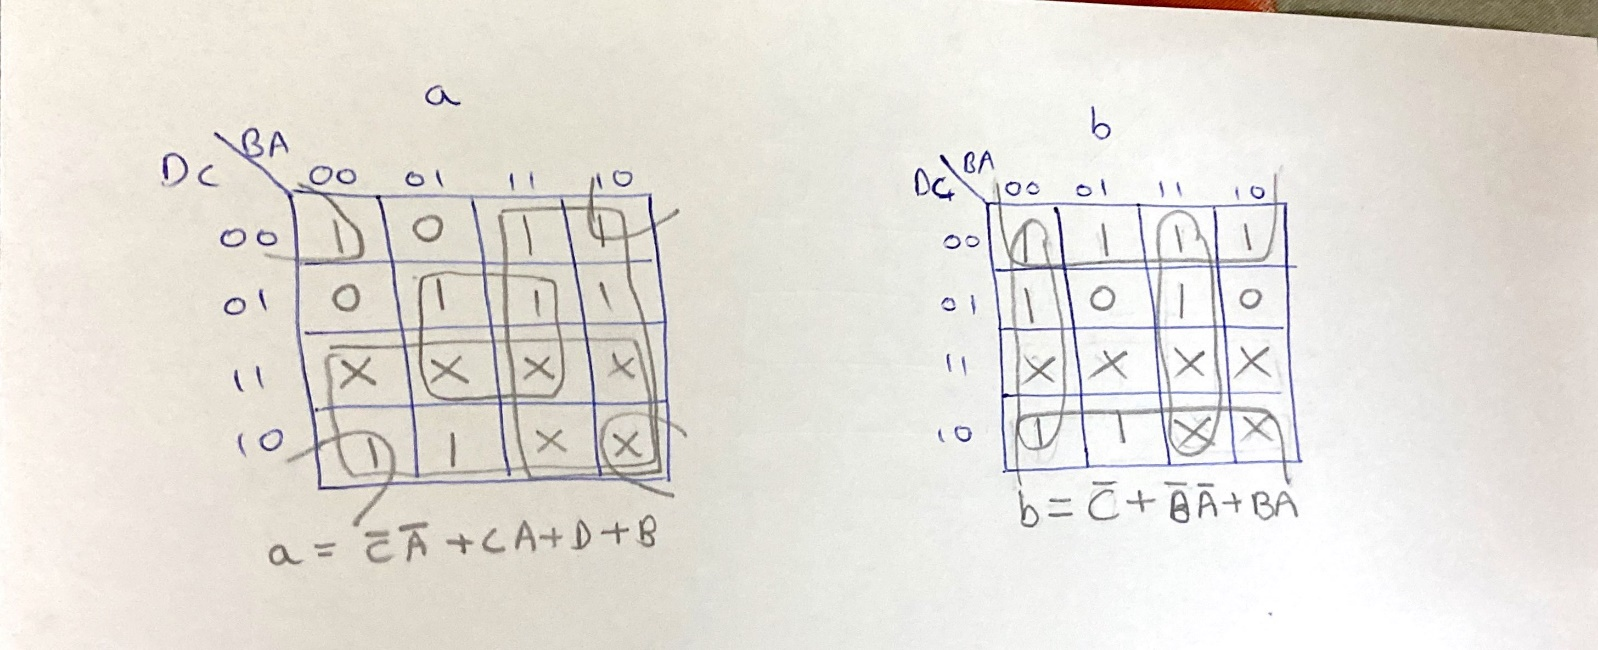 a
DC \ BA 00 01 11 10
00 1 0 1 1
01 0 1 1 1
11 X X X X
10 1 1 X X
a = C̅ A̅ + CA + D + B
b
DC \ BA 00 01 11 10
00 1 1 1 1
01 1 0 1 0
11 X X X X
10 1 1 X X
b = C̅ + B̅ A̅ + BA